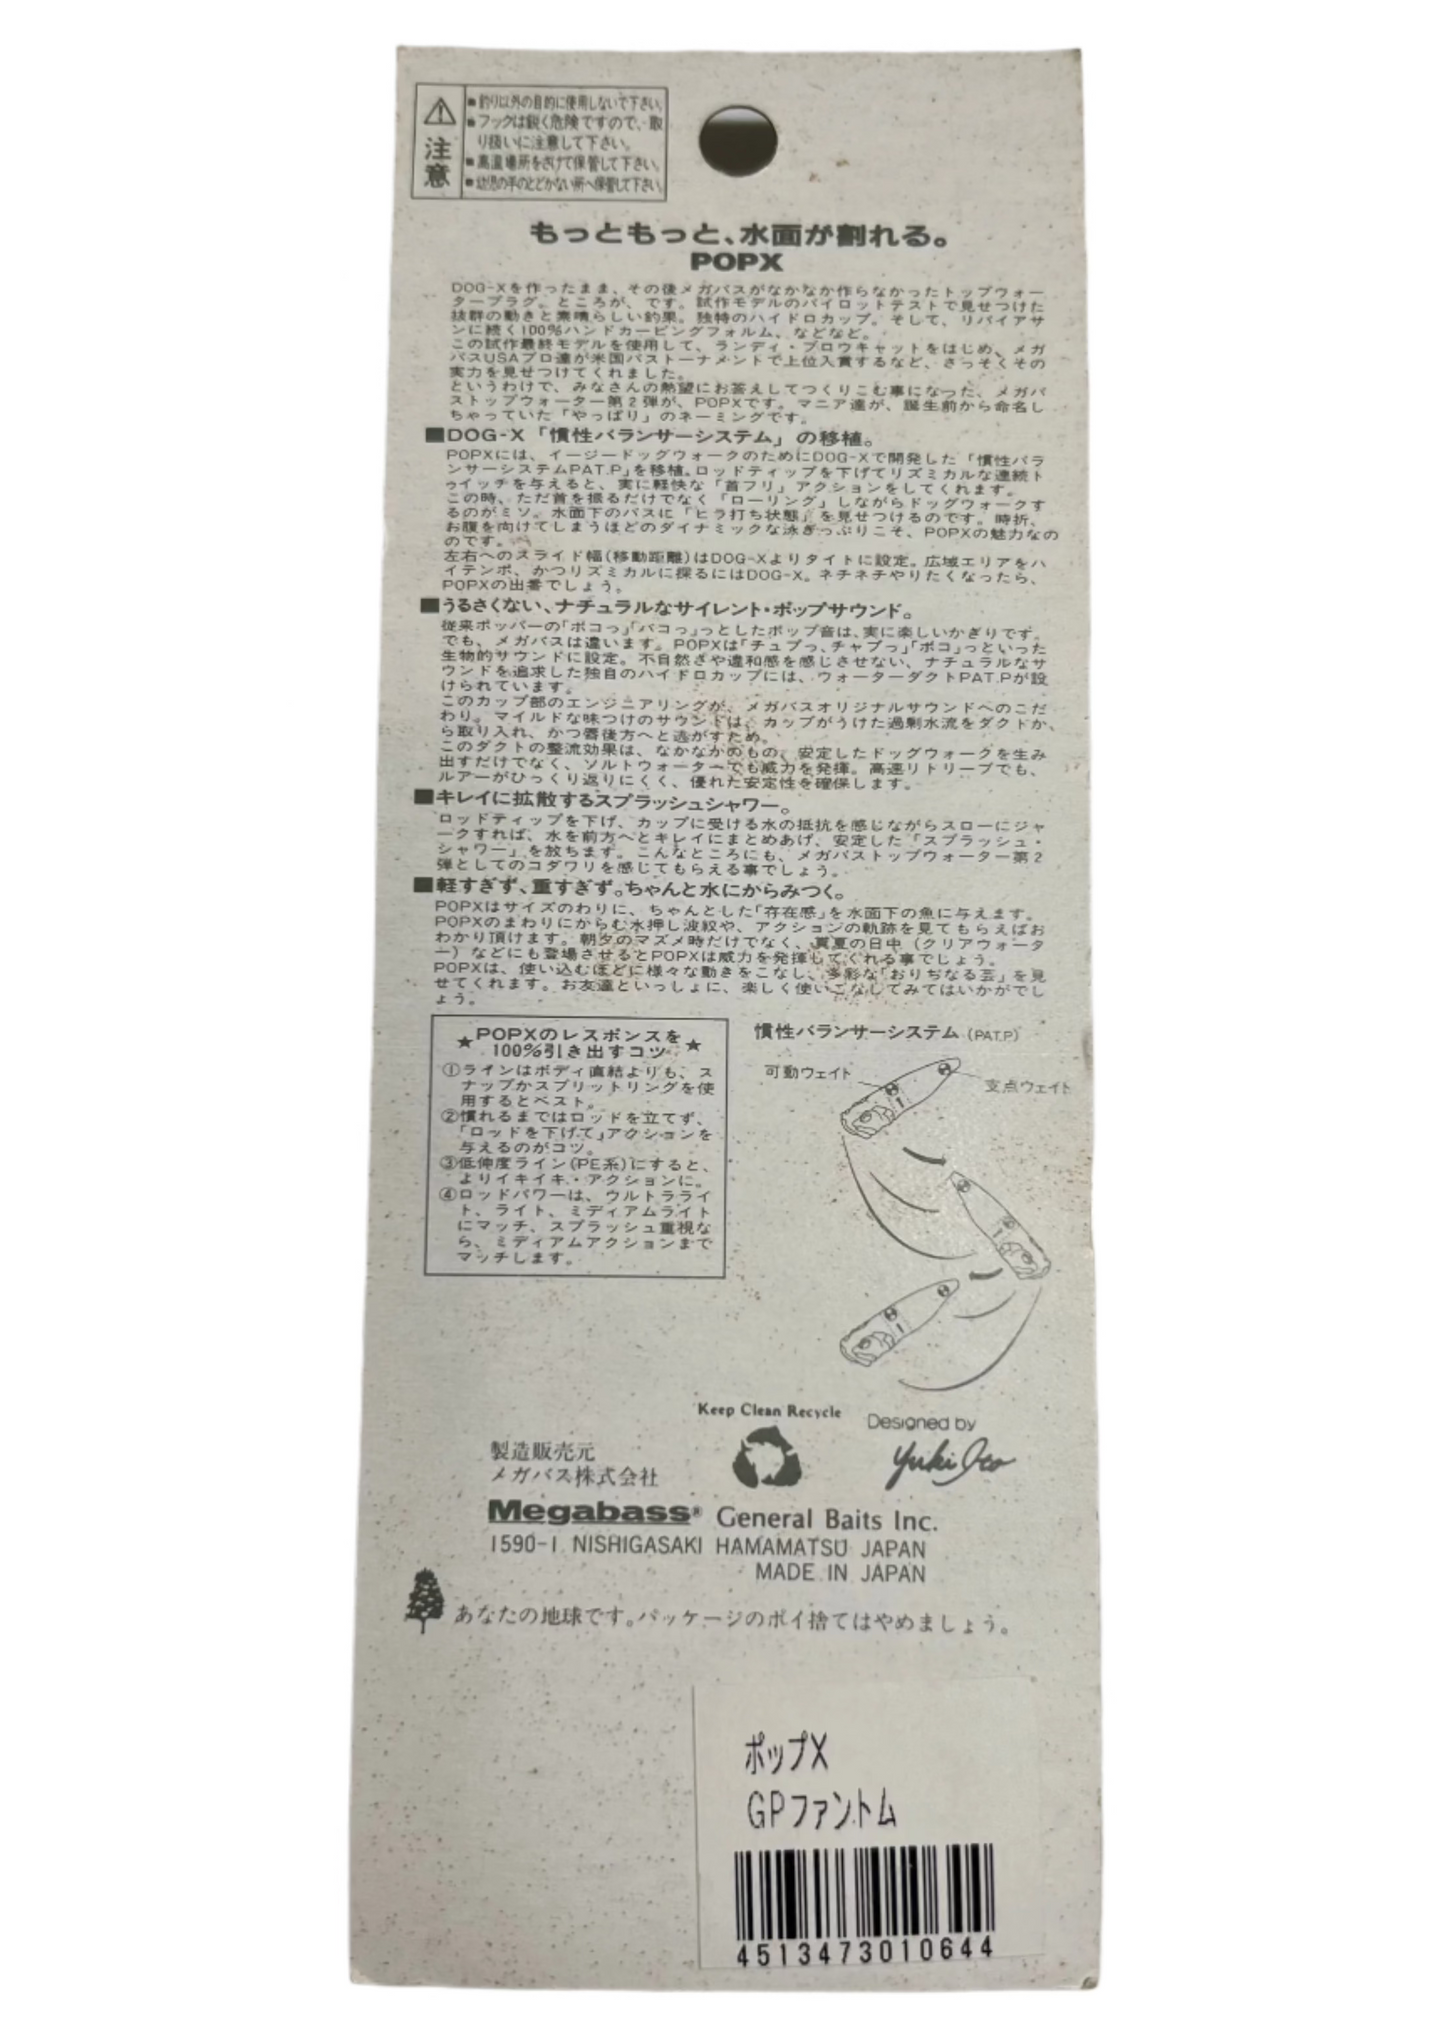 注意
■釣り以外の目的に使用しないで下さい。
■フックは鋭く危険ですので、取
り扱いに注意して下さい。
■高温場所をさけて保管して下さい。
■幼児の手のとどかない所へ保管して下さい。
もっともっと、水面が割れる。
POPX
DOG-Xを作ったまま、その後メガバスがなかなか作らなかったトップウォー
タープラグ。ところが、です。試作モデルのパイロットテストで見せつけた
抜群の動きと素晴らしい釣果。独特のハイドロカップ。そして、リバイアサ
ンに続く100%ハンドカービングフォルム、などなど。
この試作最終モデルを使用して、ランディ・ブロウキャットをはじめ、メガ
バスUSAプロ達が米国バストーナメントで上位入賞するなど、さっそくその
実力を見せつけてくれました。
というわけで、みなさんの熱望にお答えしてつくりこむ事になった、メガバ
ストップウォーター第2弾が、POPXです。マニア達が、誕生前から命名し
ちゃっていた「やっぱり」のネーミングです。
■DOG-X「慣性バランサーシステム」の移植。
POPXには、イージードッグウォークのためにDOG-Xで開発した「慣性バラ
ンサーシステムPAT.P」を移植。ロッドティップを下げてリズミカルな連続ト
ゥイッチを与えると、実に軽快な「首フリ」アクションをしてくれます。
この時、ただ首を振るだけでなく「ローリング」しながらドッグウォークす
るのがミソ。水面下のバスに「ヒラ打ち状態」を見せつけるのです。時折、
お腹を向けてしまうほどのダイナミックな泳ぎっぷりこそ、POPXの魅力なの
のです。
左右へのスライド幅(移動距離)はDOG-Xよりタイトに設定。広域エリアをハ
イテンポ、かつリズミカルに探るにはDOG-X。ネチネチやりたくなったら、
POPXの出番でしょう。
■うるさくない、ナチュラルなサイレント・ポップサウンド。
従来ポッパーの「ポコっ」「パコっ」っとしたポップ音は、実に楽しいかぎりです。
でも、メガバスは違います。POPXは「チュプっ、チャプっ」「ポコ」っといった
生物的サウンドに設定。不自然さや違和感を感じさせない、ナチュラルなサ
ウンドを追求した独自のハイドロカップには、ウォーターダクトPAT.Pが設
けられています。
このカップ部のエンジニアリングが、メガバスオリジナルサウンドへのこだ
わり。マイルドな味つけのサウンドは、カップがうけた過剰水流をダクトか
ら取り入れ、かつ唇後方へと逃がすため。
このダクトの整流効果は、なかなかのもの、安定したドッグウォークを生み
出すだけでなく、ソルトウォーターでも威力を発揮。高速リトリーブでも、
ルアーがひっくり返りにくく、優れた安定性を確保します。
■キレイに拡散するスプラッシュシャワー。
ロッドティップを下げ、カップに受ける水の抵抗を感じながらスローにジャ
ークすれば、水を前方へとキレイにまとめあげ、安定した「スプラッシュ・
シャワー」を放ちます。こんなところにも、メガバストップウォーター第2
弾としてのコダワリを感じてもらえる事でしょう。
■軽すぎず、重すぎず。ちゃんと水にからみつく。
POPXはサイズのわりに、ちゃんとした「存在感」を水面下の魚に与えます。
POPXのまわりにからむ水押し波紋や、アクションの軌跡を見てもらえばお
わかり頂けます。朝夕のマズメ時だけでなく、真夏の日中（クリアウォータ
ー）などにも登場させるとPOPXは威力を発揮してくれる事でしょう。
POPXは、使い込むほどに様々な動きをこなし、多彩な「おりぢなる芸」を見
せてくれます。お友達といっしょに、楽しく使いこなしてみてはいかがでし
ょう。
★POPXのレスポンスを
100%引き出すコツ★
①ラインはボディ直結よりも、ス
ナップかスプリットリングを使
用するとベスト。
②慣れるまではロッドを立てず、
「ロッドを下げて」アクションを
与えるのがコツ。
③低伸度ライン(PE系)にすると、
よりイキイキ・アクションに。
④ロッドパワーは、ウルトラライ
ト、ライト、ミディアムライト
にマッチ、スプラッシュ重視な
ら、ミディアムアクションまで
マッチします。
慣性バランサーシステム(PAT.P)
可動ウェイト
支点ウェイト
Keep Clean Recycle
Designed by
Yuki Ito
製造販売元
メガバス株式会社
Megabass® General Baits Inc.
1590-1 NISHIGASAKI HAMAMATSU JAPAN
MADE IN JAPAN
あなたの地球です。パッケージのポイ捨てはやめましょう。
ポップX
GPファントム
4513473010644